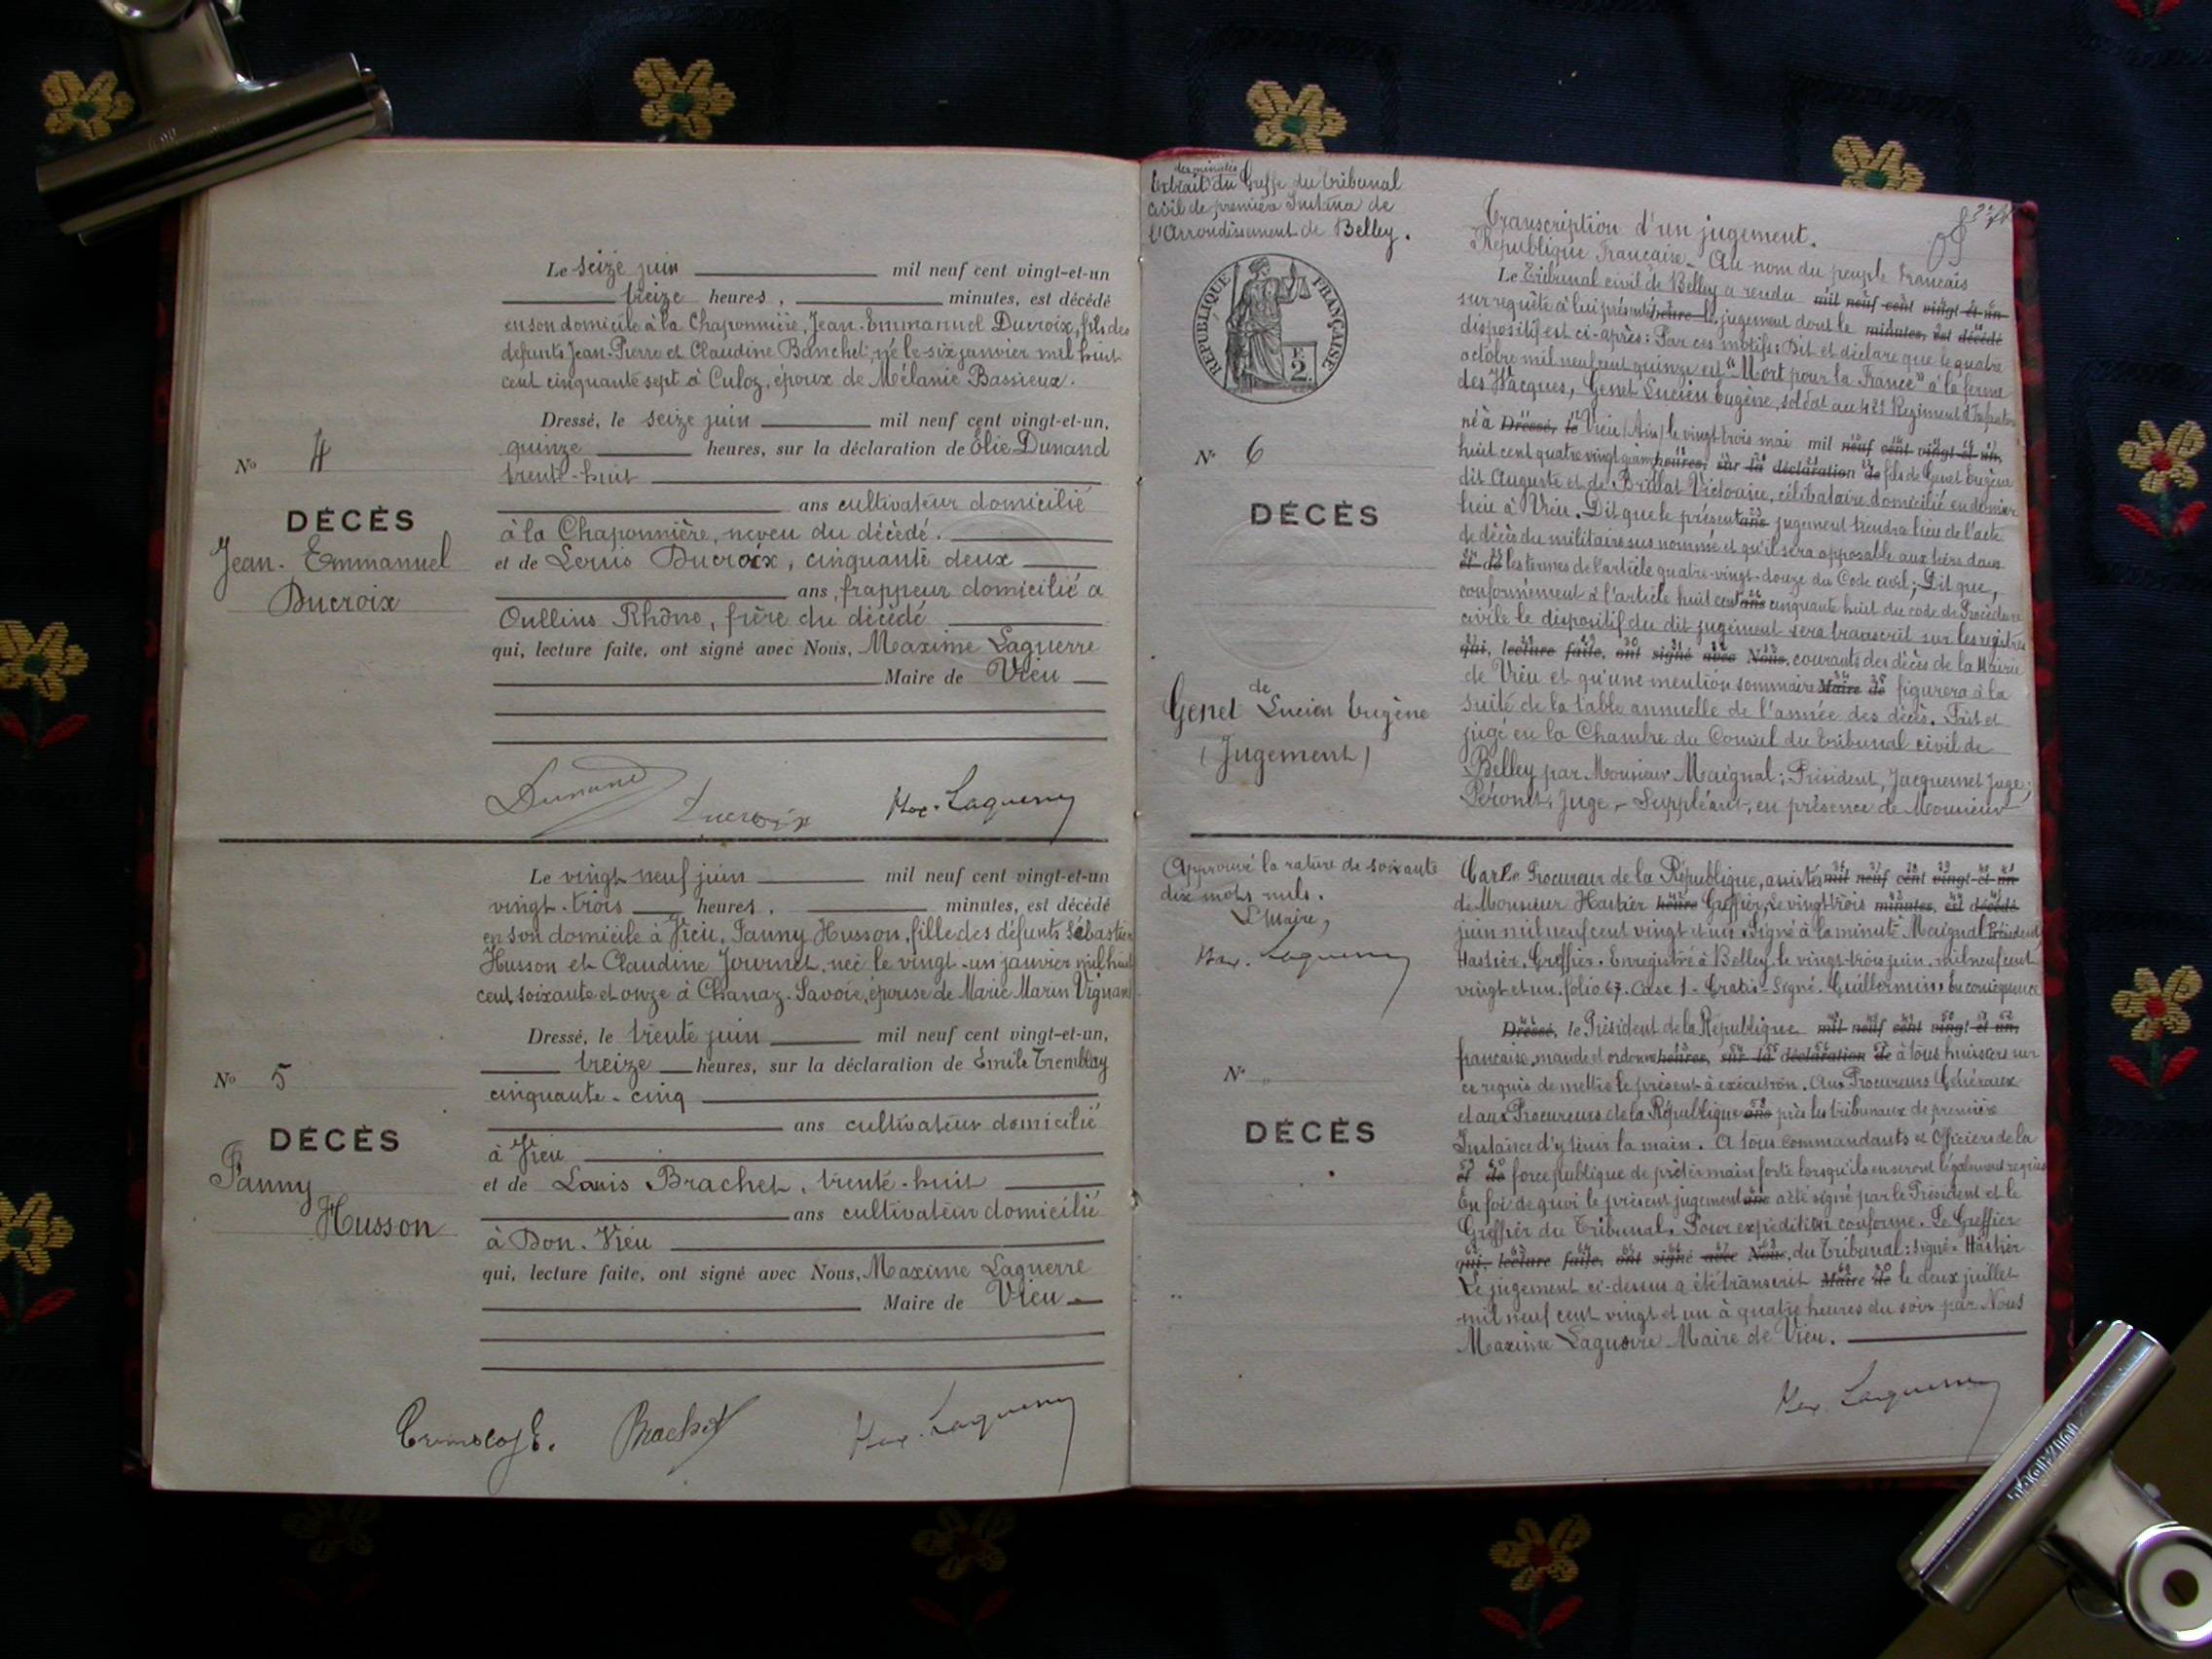 Le seize juin mil neuf cent vingt-et-un
treize heures, minutes, est décédé
en son domicile à la Chaponnière, Jean-Emmanuel Ducroix, fils des
defunts Jean-Pierre et Claudine Banchet, né le six janvier mil huit
cent cinquante sept à Culoz, époux de Mélanie Bassieux.
Dressé, le seize juin mil neuf cent vingt-et-un,
quinze heures, sur la déclaration de Élie Dunand
trente-huit
ans cultivateur domicilié
à la Chaponnière, neveu du décédé.
et de Louis Ducroix, cinquante deux
ans, frappeur domicilié a
Oullins Rhône, frère du décédé
qui, lecture faite, ont signé avec Nous, Maxime Laguerre
Maire de Vieu
No 4
DÉCÈS
Jean-Emmanuel
Ducroix
Dunand Ducroix Max. Laguerre
Le vingt neuf juin mil neuf cent vingt-et-un
vingt-trois heures, minutes, est décédé
en son domicile à Vieu, Fanny Husson, fille des défunts Sébastien
Husson et Claudine Journet, née le vingt-un janvier mil huit
cent soixante et onze à Chanaz-Savoie, épouse de Marie Marin Vignand
Dressé, le trente juin mil neuf cent vingt-et-un,
treize heures, sur la déclaration de Émile Tremblay
cinquante-cinq
ans cultivateur domicilié
à Vieu
et de Louis Brachet, trente-huit
ans cultivateur domicilié
à Don-Vieu
qui, lecture faite, ont signé avec Nous, Maxime Laguerre
Maire de Vieu
No 5
DÉCÈS
Fanny
Husson
Brachet Max. Laguerre
des minutes
Extrait du Greffe du tribunal
civil de première Instance de
l'Arrondissement de Belley.
RÉPUBLIQUE FRANÇAISE
2
No 6
DÉCÈS
de
Genet Lucien Eugène
(Jugement)
Transcription d'un jugement.
République Française - Au nom du peuple Français
Le Tribunal civil de Belley a rendu mil neuf cent vingt-et-un
sur requête à lui présenté heure le jugement dont le minutes, est décédé
dispositif est ci-après: Par ces motifs: Dit et déclare que le quatre
octobre mil neuf cent quinze est "Mort pour la France" à la ferme
des Wacques, Genet Lucien Eugène, soldat au 42e Régiment d'Infanterie
né à Dressé, le Vieu (Ain) le vingt trois mai mil neuf cent vingt-et-un,
huit cent quatre vingt heures, sur la déclaration de fils de Genet Eugène
dit Auguste et de Brillat Victorine, célibataire domicilié en dernier
lieu à Vieu. Dit que le présent ans jugement tiendra lieu de l'acte
de décès du militaire sus nommé et qu'il sera opposable aux tiers dans
et de les termes de l'article quatre-vingt-douze du Code civil; Dit que,
conformément à l'article huit cent ans cinquante huit du code de Procédure
civile le dispositif du dit jugement sera transcrit sur les registres
qui, lecture faite, ont signé avec Nous, courants des décès de la Mairie
de Vieu et qu'une mention sommaire Maire de figurera à la
suite de la table annuelle de l'année des décès. Fait et
jugé en la Chambre du Conseil du tribunal civil de
Belley par Monsieur Maignal; Président, Jacquemet Juge;
Péronet, Juge-Suppléant, en présence de Monsieur
Approuvé la rature de soixante
dix mots nuls.
Le Maire,
Max. Laguerre
No
DÉCÈS
Procureur de la République, assistés mil neuf cent vingt-et-un
de Monsieur Hastier heure Greffier, le vingt trois minutes, est décédé
juin mil neuf cent vingt et un. Signé à la minute Maignal Président,
Hastier, Greffier. Enregistré à Belley le vingt-trois juin mil neuf cent
vingt et un, folio 67. Case 1 - Gratis - Signé. Guillermin. En conséquence
Dressé, le Président de la République mil neuf cent vingt et un,
française mande et ordonne heures, sur la déclaration de à tous huissiers sur
ce requis de mettre le présent à exécution. Aux Procureurs Généraux
et aux Procureurs de la République ans près les tribunaux de première
Instance d'y tenir la main. A tous Commandants et Officiers de la
et de force publique de prêter main forte lorsqu'ils en seront légalement requis
En foi de quoi le présent jugement ans a été signé par le Président et le
Greffier du Tribunal. Pour expédition conforme. Le Greffier
qui, lecture faite, ont signé avec Nous, du Tribunal: signé: Hastier
Le jugement ci-dessus a été transcrit Maire de le deux juillet
mil neuf cent vingt et un à quatre heures du soir par Nous
Maxime Laguerre Maire de Vieu.
Max. Laguerre